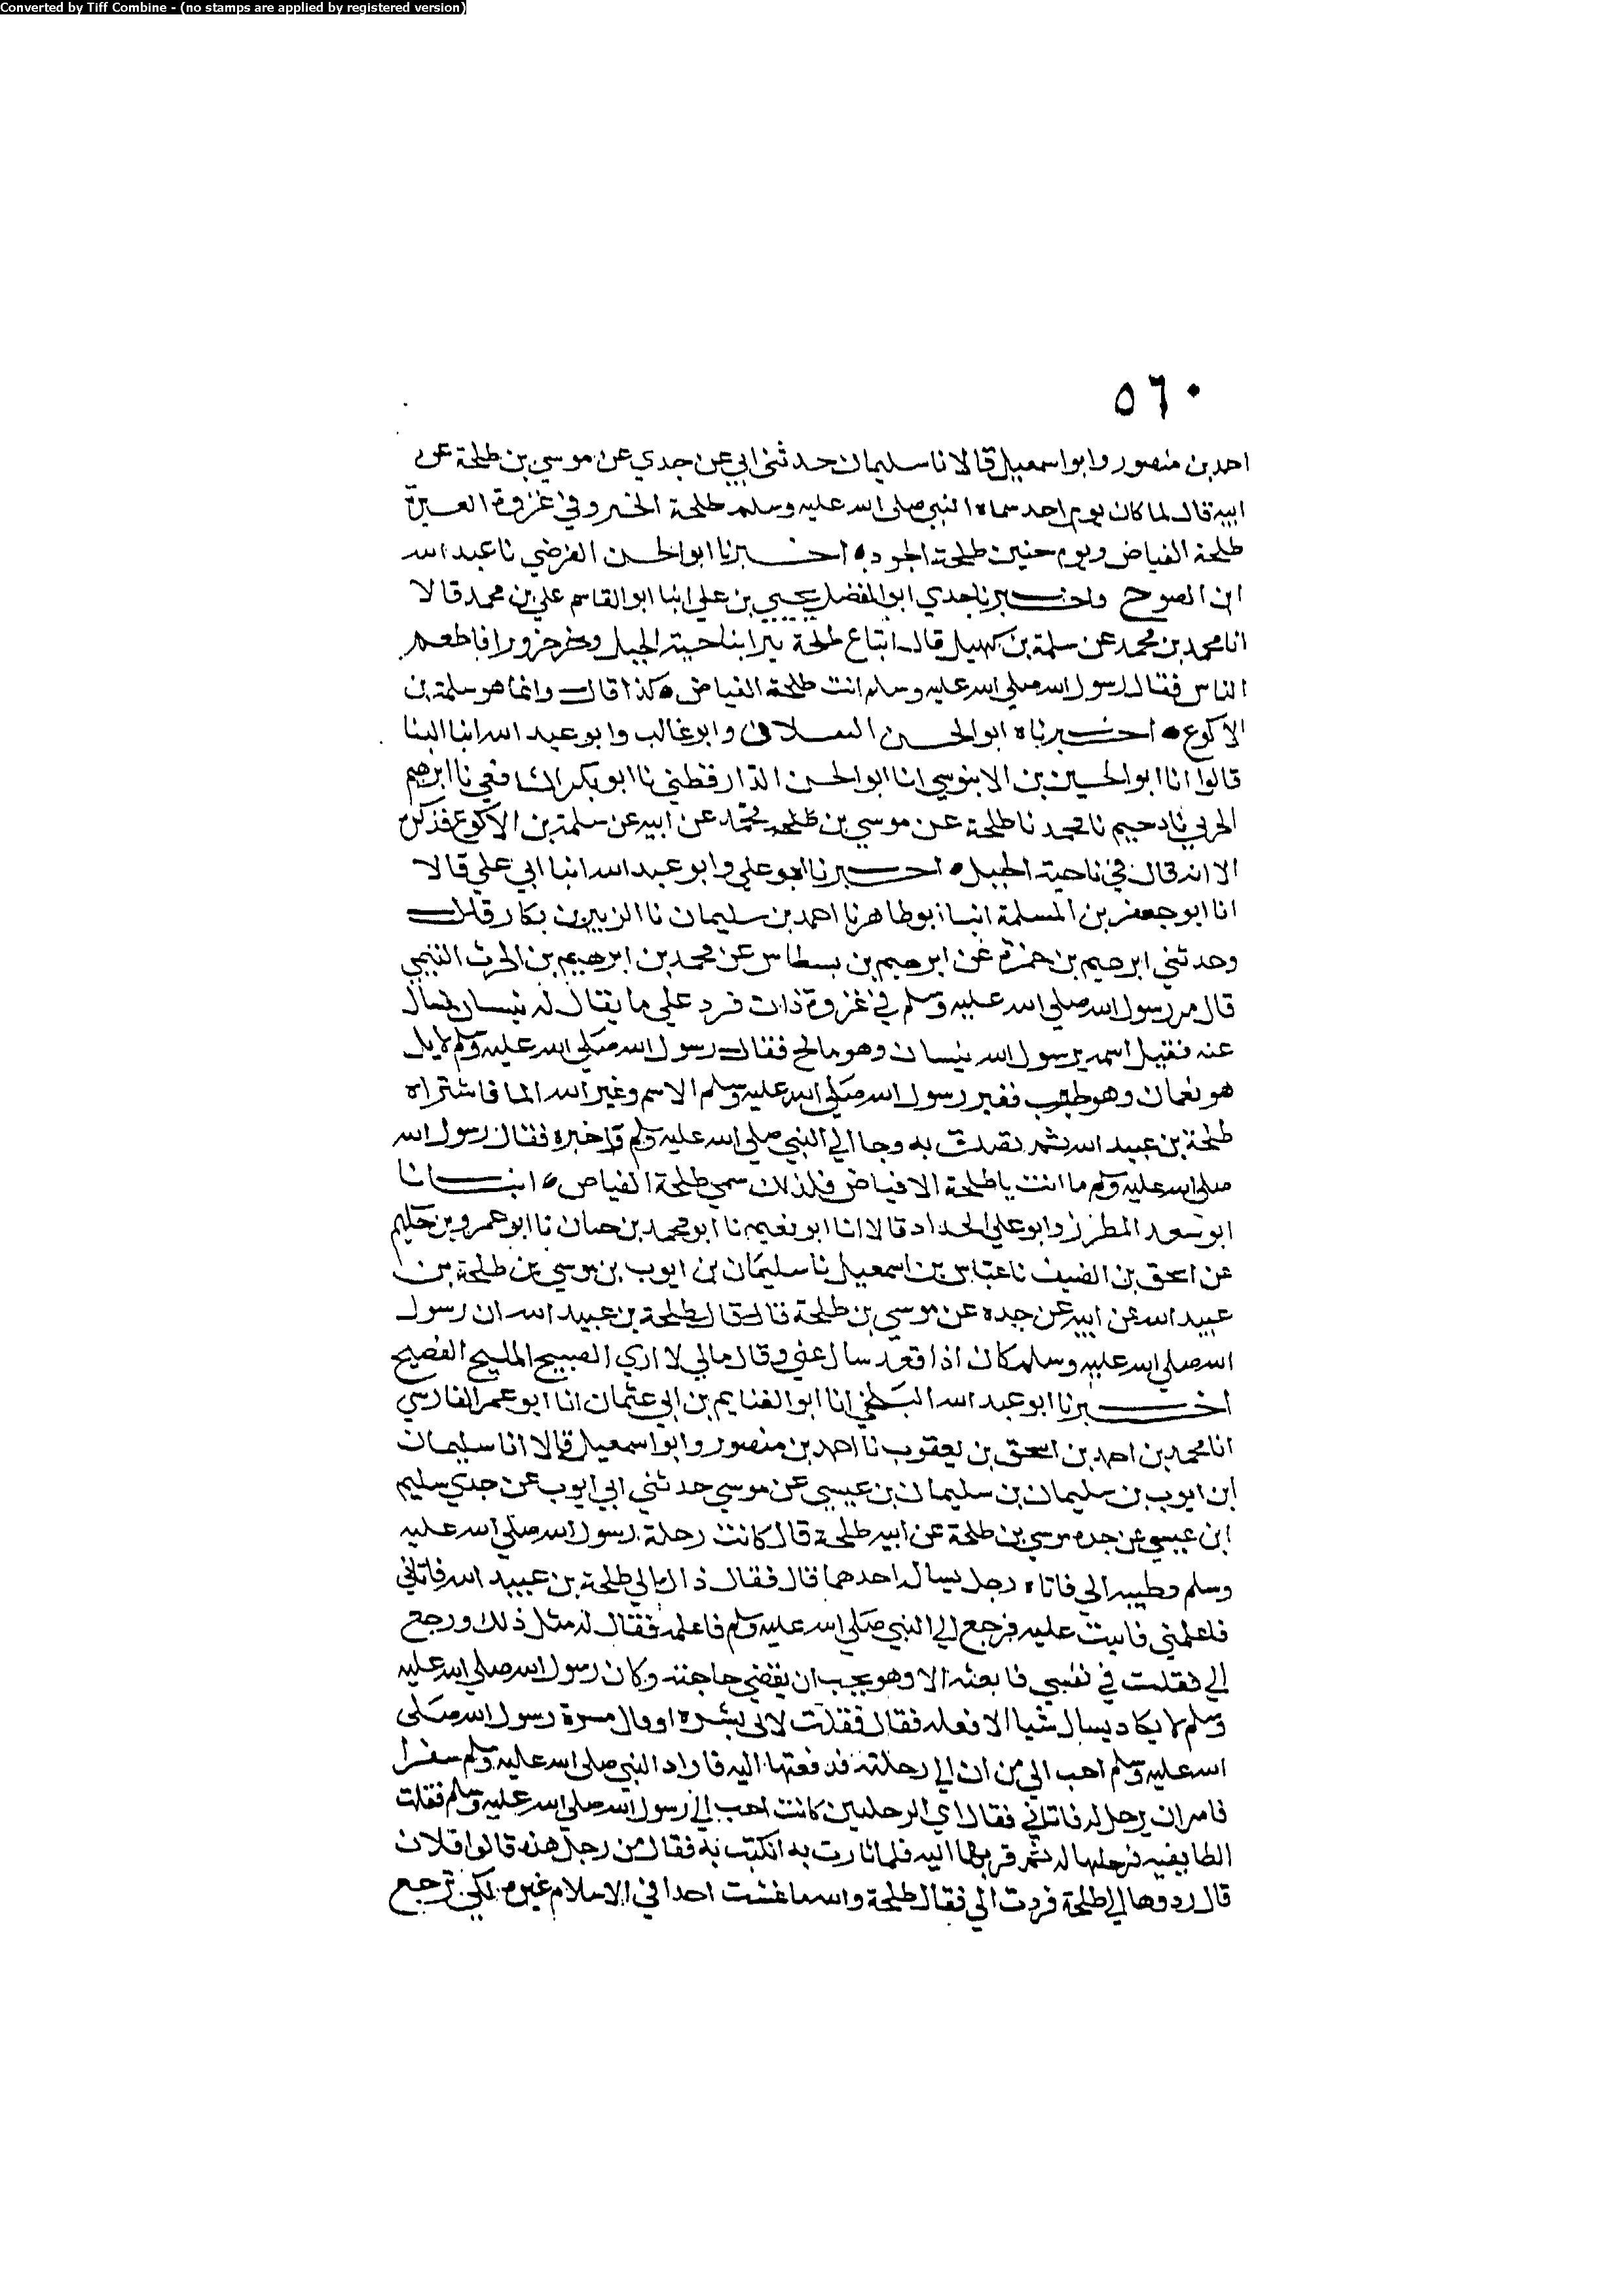 Converted by Tiff Combine - (no stamps are applied by registered version)
٥٦٠
احمد بن منصور وابو اسمعيل قالا نا سليمان حدثني ابي عن جدي عن موسي بن طلحة عن
ابيه قال لما كان يوم احد سماه النبي صلى الله عليه وسلم طلحة الخير وفي غزوة العسرة
طلحة الفياض ويوم حنين طلحة الجود ه اخبرنا ابو الحسن الفرضي نا عبد الله
ابن الصوح واخبرنا جدي ابو المفضل يحيي بن علي انبا ابو القاسم علي بن محمد قالا
انا محمد بن محمد عن سلمة بن كهيل قال ابتاع طلحة بيرا بناحية الجبل ونحر جزورا فاطعم
الناس فقال رسول الله صلي الله عليه وسلم انت طلحة الفياض ه كذا قال وانما هو سلمة بن
الاكوع ه اخبرناه ابو الحسن وابو غالب وابو عبد الله انبا البنا
قالوا انا ابو الحسين بن الابنوسي انا ابو الحسن الدارقطني نا ابو بكر الشافعي نا ابرهيم
الحربي نا دحيم نا محمد نا طلحة عن موسي بن محمد عن ابيه عن سلمة بن الاكوع فذكره
الا انه قال في ناحية الجبل ه اخبرنا ابو علي وابو عبد الله انبا ابي علي قالا
انا ابو جعفر بن المسلمة انبا ابو طاهر نا احمد بن سليمان نا الزبير بن بكار قال
وحدثني ابرهيم بن حمزة عن ابرهيم بن بسطاس عن محمد بن ابرهيم بن الحرث التيمي
قال مر رسول الله صلي الله عليه وسلم في غزوة ذات قرد علي ما يقال له بيسان فسال
عنه فقيل اسمه يرسول الله بيسان وهو مالح فقال رسول الله صلي الله عليه وسلم لا بل
هو نعمان وهو طيب فغير رسول الله صلي الله عليه وسلم الاسم وغير الله الما فاشتراه
طلحة بن عبيد الله ثم تصدق به وجا الي النبي صلي الله عليه وسلم فاخبره فقال رسول الله
صلي الله عليه وسلم ما انت يا طلحة الا فياض فلذلك سمي طلحة الفياض ه انبانا
ابو سعد المطرز وابو علي الحداد قالا انا ابو نعيم نا ابو محمد بن حسان نا ابو عمرو بن حكيم
عن اسحق بن الضيف نا عباس بن اسمعيل نا سليمان بن ايوب بن موسي بن طلحة بن
عبيد الله عن ابيه عن جده عن موسي بن طلحة قال قال طلحة بن عبيد الله ان رسول
الله صلي الله عليه وسلم كان اذا قعد سال عني وقال مالي لا اري الصبيح المليح الفصيح
اخبرنا ابو عبد الله البلخي انا ابو الغنايم بن ابي عثمان انا ابو عمر الفارسي
انا محمد بن احمد بن اسحق بن يعقوب نا احمد بن منصور وابو اسمعيل قالا انا سليمان
ابن ايوب بن سليمان بن سليمان بن عيسي عن موسي حدثني ابي ايوب عن جدي سليم
ابن عيسي عن جده موسي بن طلحة عن ابيه طلحة قال كانت رحلة رسول الله صلي الله عليه
وسلم وطيبه الي فاتاه رجل يساله احدهما قال فقال ذاك الي طلحة بن عبيد الله فاتاني
فاعلمني فابيت عليه فرجع الي النبي صلي الله عليه وسلم فاعلمه فقال له مثل ذلك ورجع
الي فقلت في نفسي ما بعثه الا وهو يحب ان يقضي حاجته وكان رسول الله صلي الله عليه
وسلم لا يكاد يسال شيا الا فعله فقال فقلت لان رسول الله صلي
الله عليه وسلم احب الي من ان الي رحلته فدفعتها اليه فاراد النبي صلي الله عليه وسلم سفرا
فامر ان يرحل له فاتاني فقال اي الرحلتين كانت احب الي رسول الله صلي الله عليه وسلم فقلت
الطايفيه فرحلها له ثم قربها اليه فلما ثارت به انكبت به فقال من رحل هذه قالوا فلان
قال ردوها الي طلحة فردت الي فقال طلحة والله ما غششت احدا في الاسلام غيره لكي ترجع